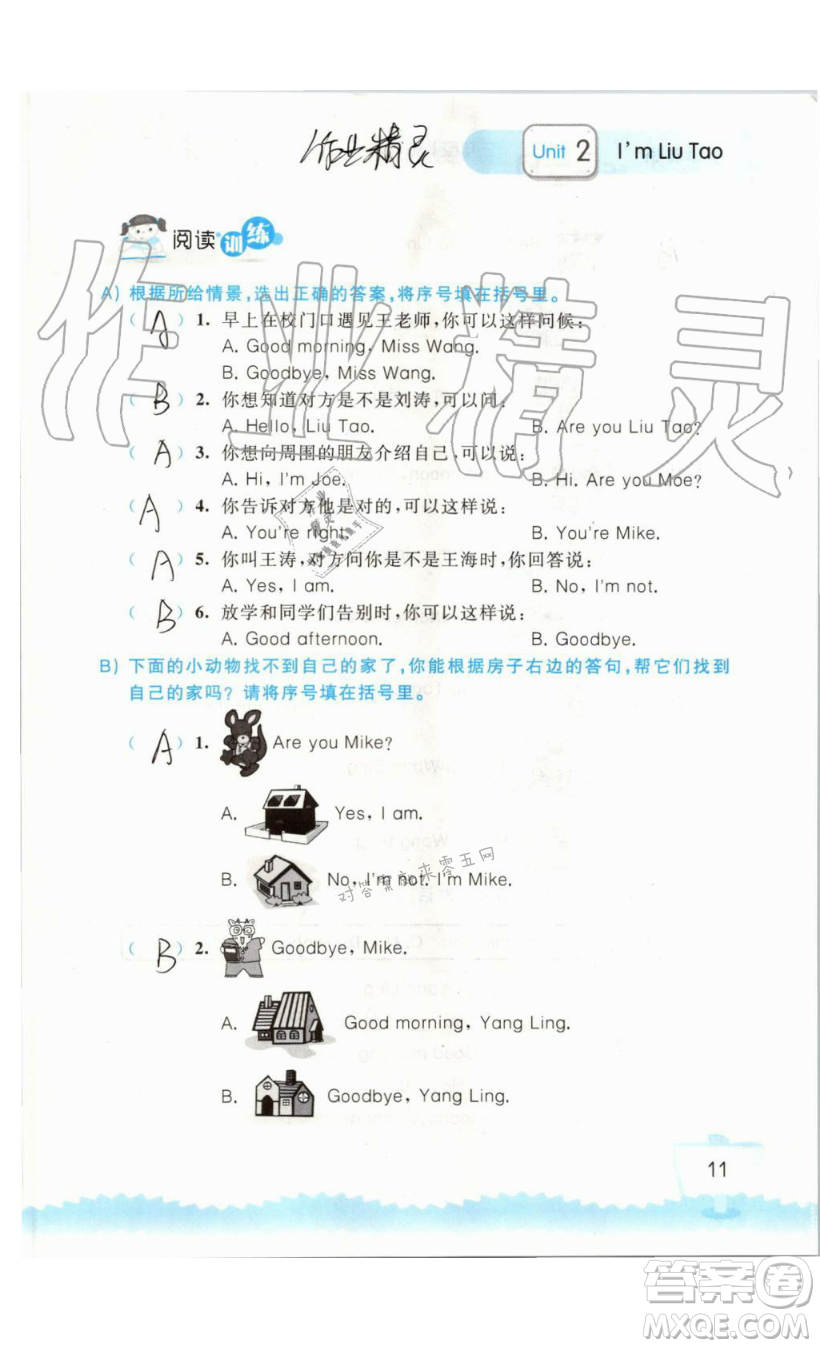 作业精灵
Unit 2 I'm Liu Tao
阅读训练
A) 根据所给情景,选出正确的答案,将序号填在括号里。
( A ) 1. 早上在校门口遇见王老师,你可以这样问候:
A. Good morning, Miss Wang.
B. Goodbye, Miss Wang.
( B ) 2. 你想知道对方是不是刘涛,可以问:
A. Hello, Liu Tao. B. Are you Liu Tao?
( A ) 3. 你想向周围的朋友介绍自己,可以说:
A. Hi, I'm Joe. B. Hi. Are you Moe?
( A ) 4. 你告诉对方他是对的,可以这样说:
A. You're right. B. You're Mike.
( A ) 5. 你叫王涛,对方问你是不是王海时,你回答说:
A. Yes, I am. B. No, I'm not.
( B ) 6. 放学和同学们告别时,你可以这样说:
A. Good afternoon. B. Goodbye.
B) 下面的小动物找不到自己的家了,你能根据房子右边的答句,帮它们找到
自己的家吗? 请将序号填在括号里。
( A ) 1. Are you Mike?
A. Yes, I am.
B. No, I'm not. I'm Mike.
对答案就来零五网
( B ) 2. Goodbye, Mike.
A. Good morning, Yang Ling.
B. Goodbye, Yang Ling.
11
作业精灵
答案卷
MXQE.COM